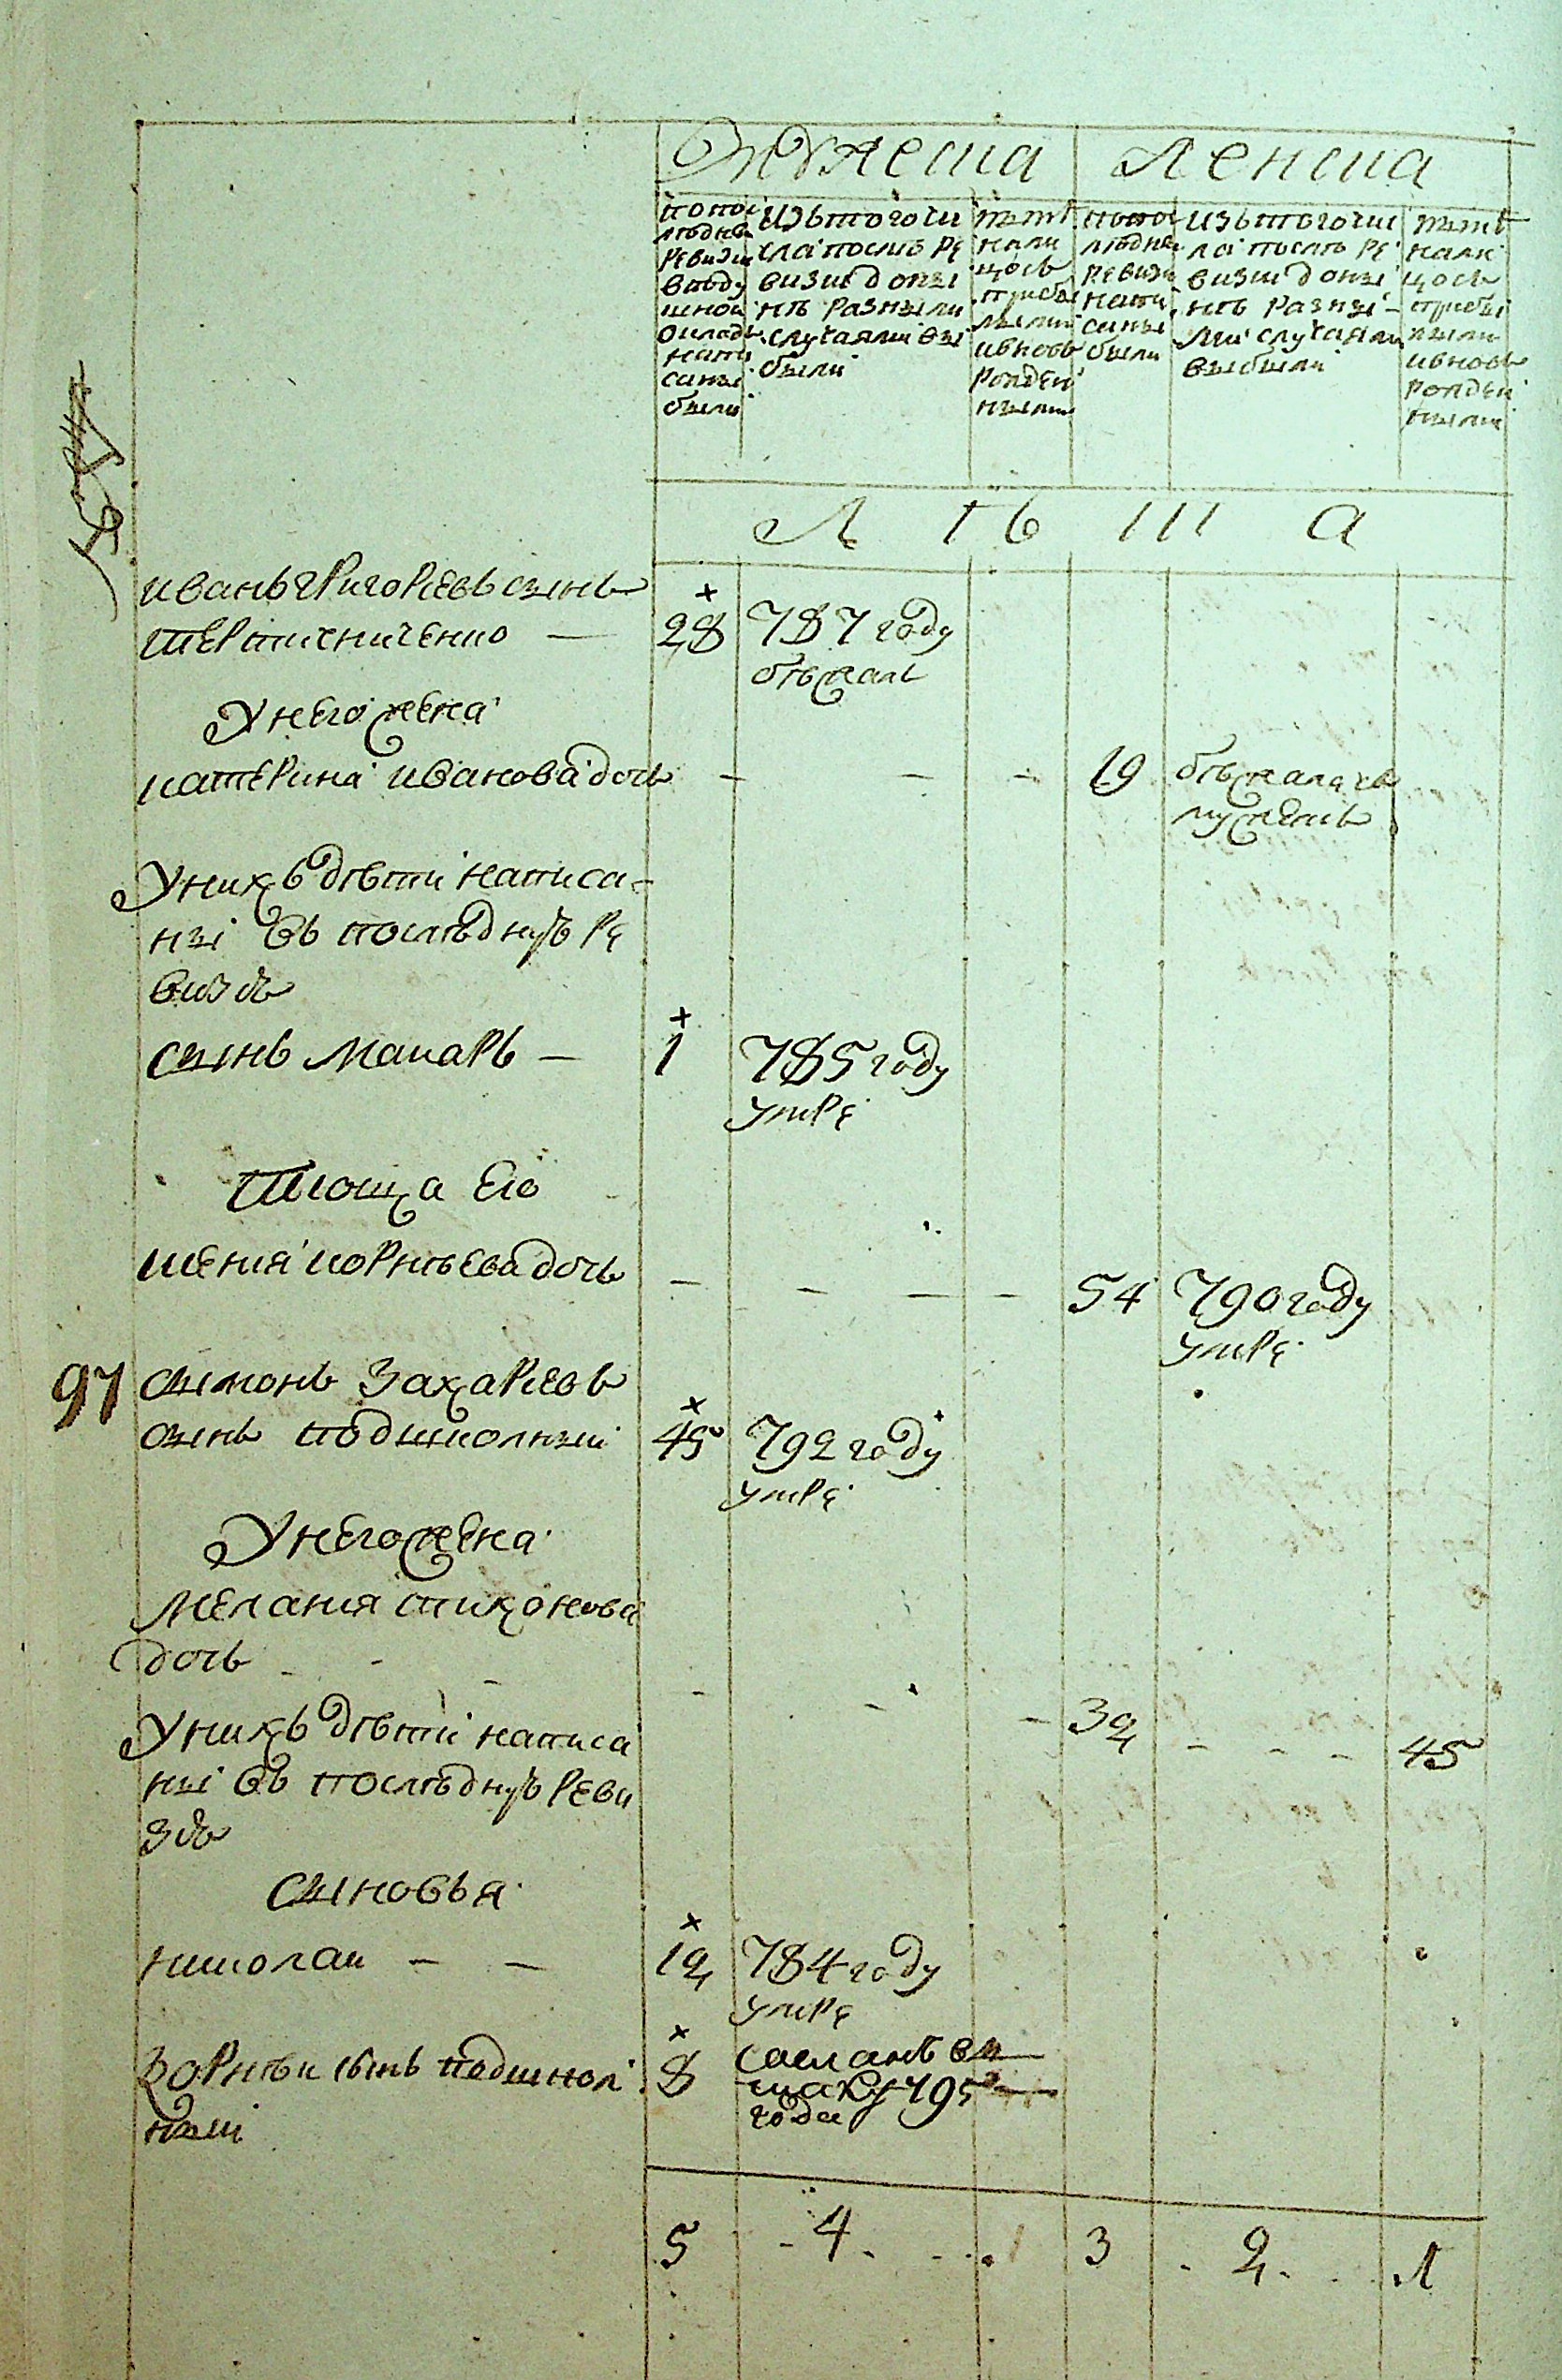 Мужеска Женска
по пос
лѣдней
ревизи
в поду
шной
окладъ
напи
саны
были
изъ того чи
сла послѣ ре
визии до ны
нѣ разными
случаями вы
были
затѣ
нали
цось
прибы
лыми
и вновь
рожден
ными
по пос
лѣдней
ревизи
напи
саны
были
изъ того чис
ла послѣ ре
визии до ны
нѣ разны-
ми случаями
выбыли
затѣ
нали
цось
прибы
лыми
и вновь
рожден
ными
Л ѣ т а
иванъ григориевъ сынъ
терпиениченко — 28 787 году
бѣжалъ
У него жена
катерина иванова дочь - - - 19 бѣжала съ
мужемъ
У нихъ дѣти написа-
ны въ послѣдную ре
визию
сынъ макаръ — 1 785 году
умре
теща его
ксения корнѣева дочь - - - - 54 790 году
умре
97 сымонъ захариевъ
сынъ подшколный 45 792 году
умре
У него жена
мелания тихонова
дочь - - - - - - 32 - - - 45
У нихъ дѣти написа
ны въ послѣдную реви
зию
сыновья
николаи — — 12 784 году
умре
корнѣи сынъ подшкол
ныи 8 795
года
5 - 4 - - 1 3 - 2 - 1